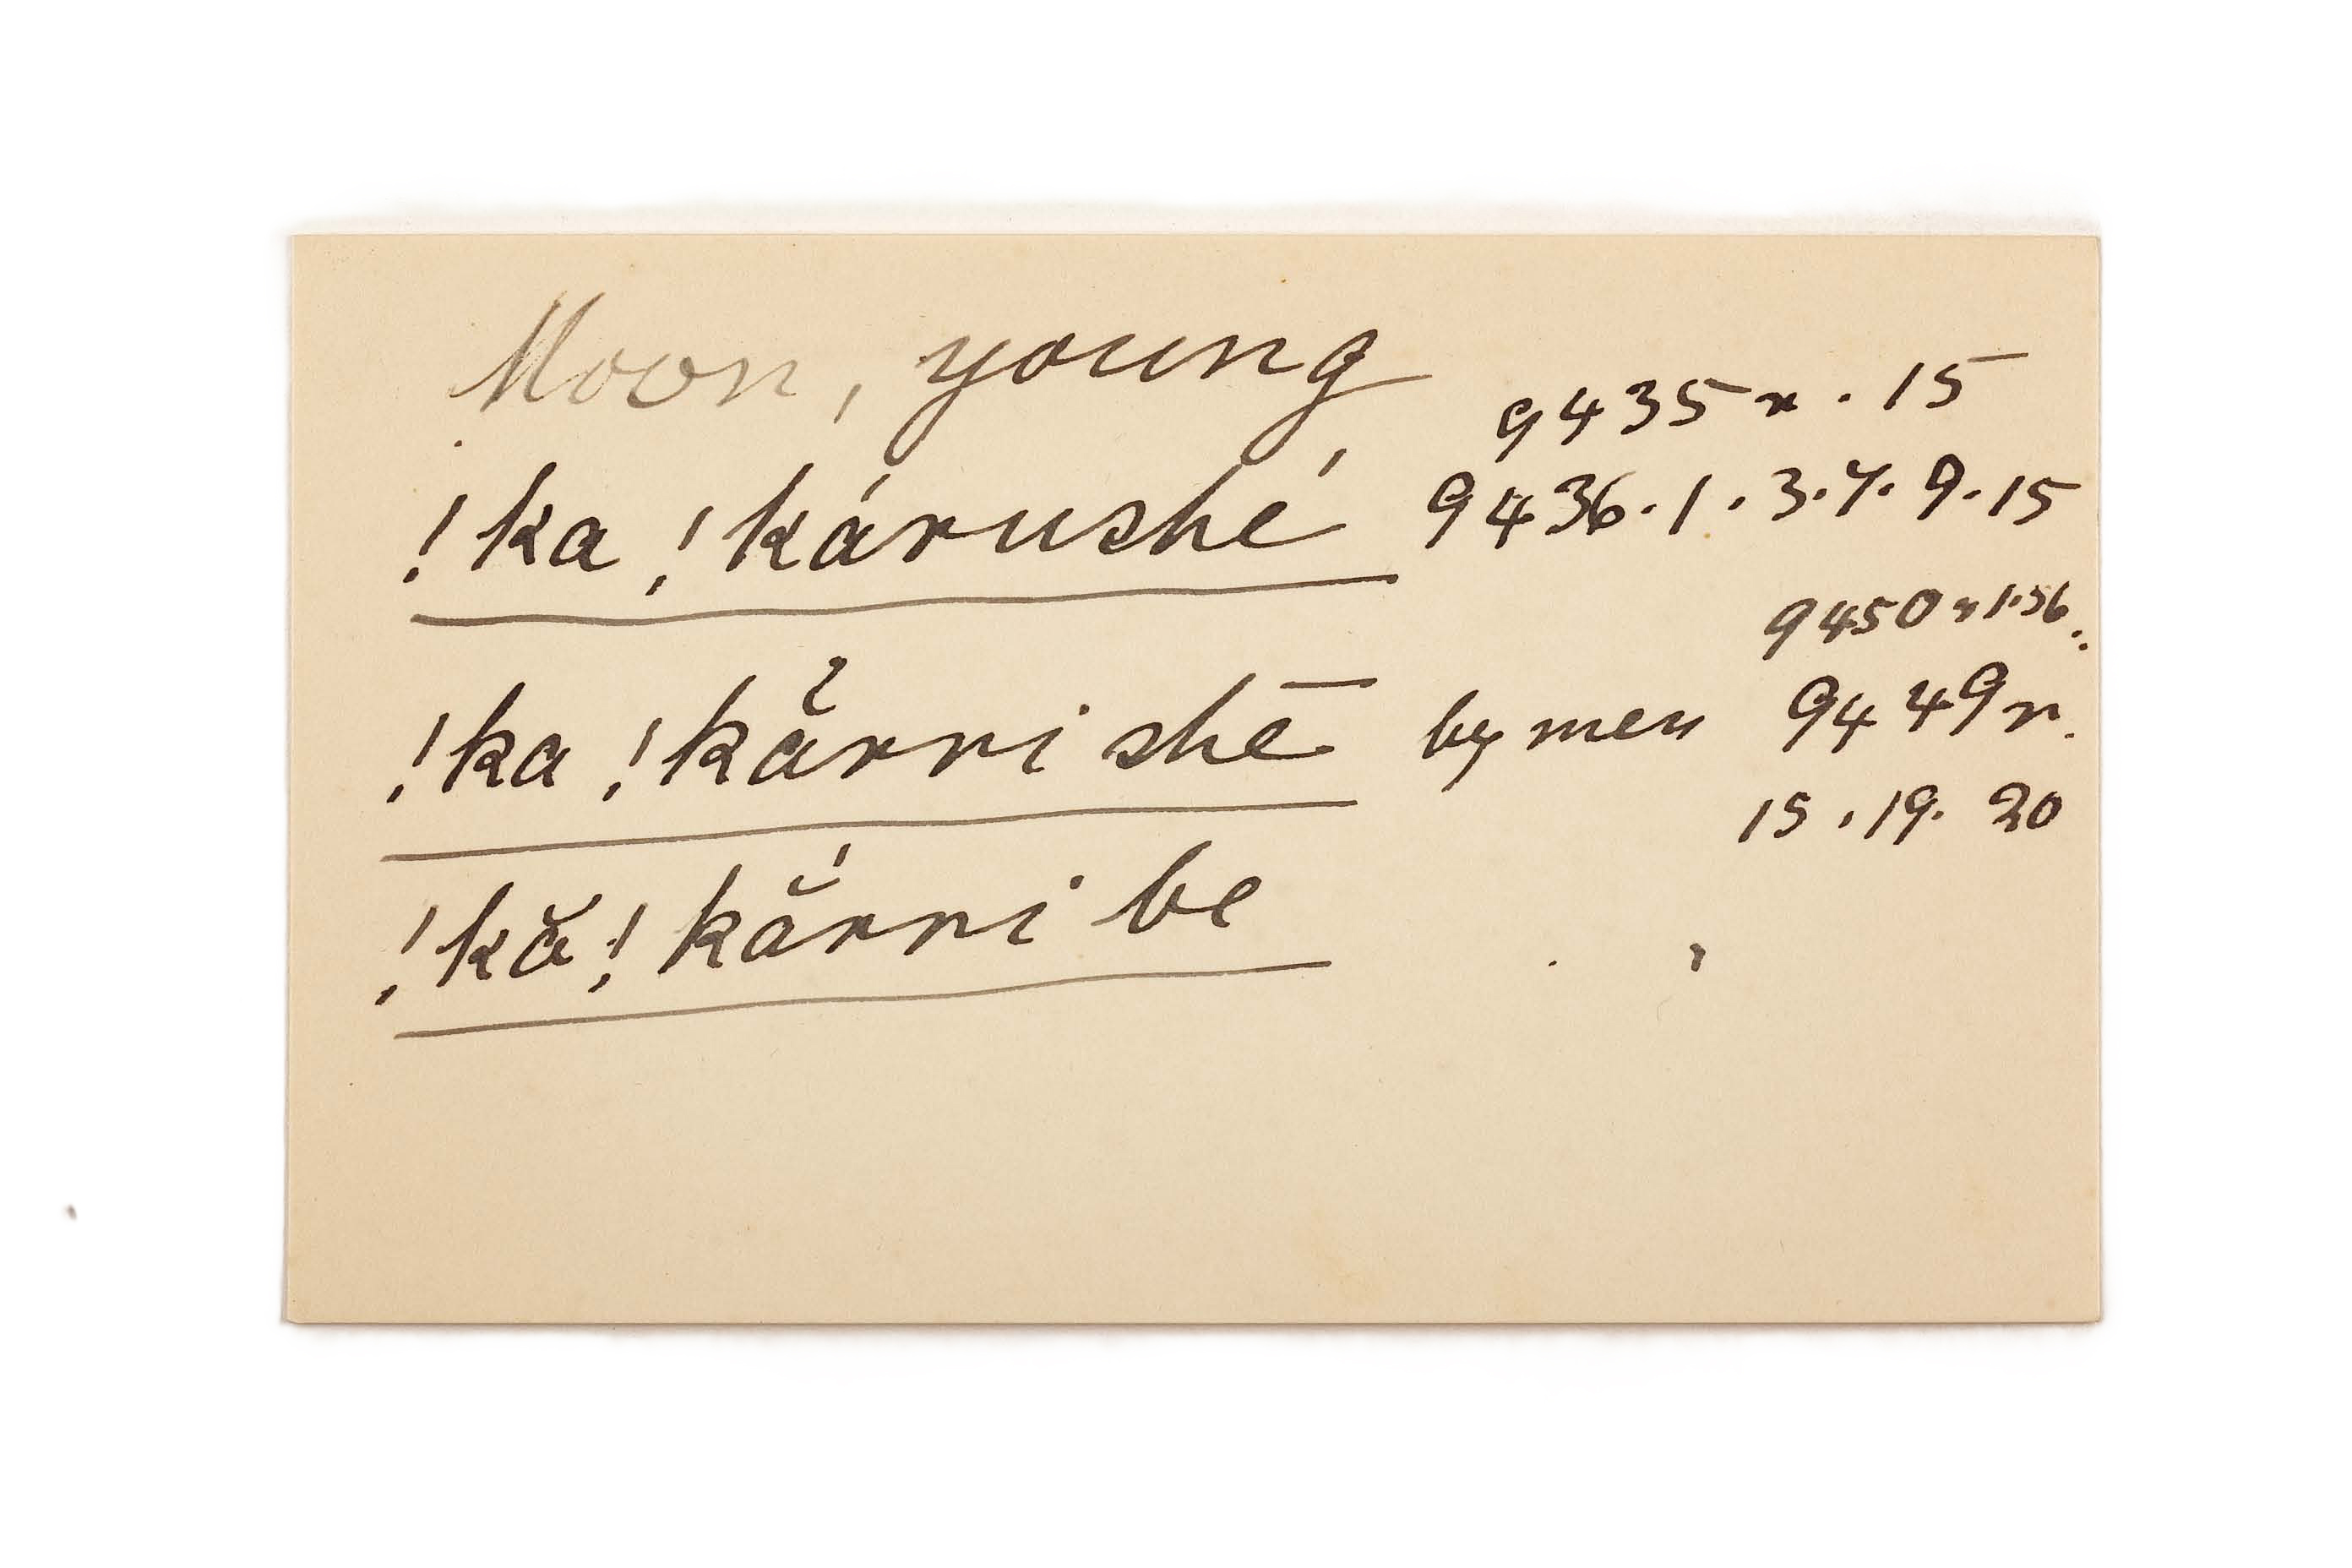 Moon, young
9435n. 15
!ka !kárushé 9436. 1. 3. 7. 9. 15
9450
!ka !kắrrishē by men 9449n.
15. 19. 20
!kă !kắrri be